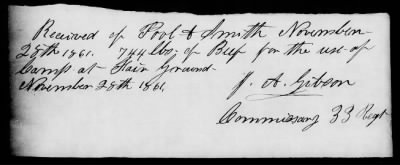 Received of Pool & Smith November
28th 1861. 744 lbs. of Beef for the use of
Camp at Fair Ground
November 28th 1861,
J. A. Gibson
Commissary 33 Regt